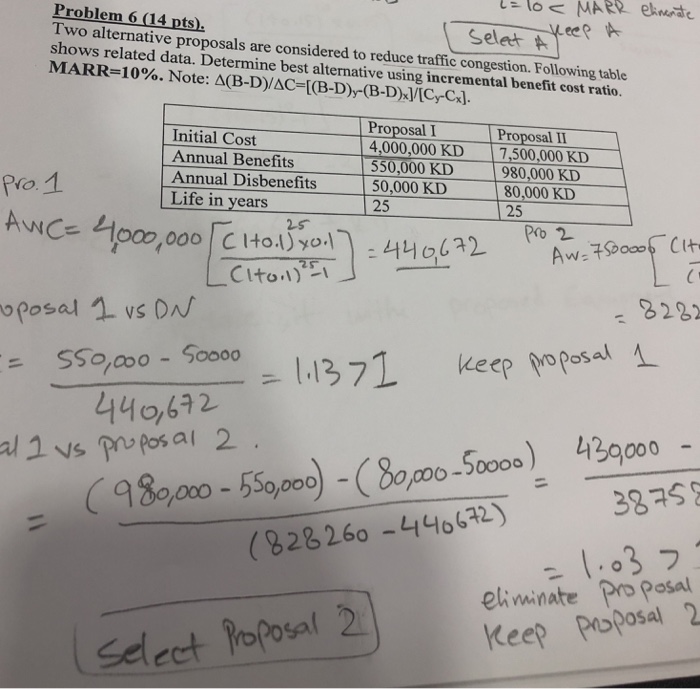 i = 10 < MARR eliminate
Keep A
Select A
Problem 6 (14 pts).
Two alternative proposals are considered to reduce traffic congestion. Following table
shows related data. Determine best alternative using incremental benefit cost ratio.
MARR=10%. Note: Δ(B-D)/ΔC=[(B-D)y-(B-D)x]/[Cy-Cx].
Proposal I Proposal II
Initial Cost 4,000,000 KD 7,500,000 KD
Annual Benefits 550,000 KD 980,000 KD
Annual Disbenefits 50,000 KD 80,000 KD
Life in years 25 25
Pro. 1
AWC = 4,000,000 [ (1+0.1)^25 x0.1 / (1+0.1)^25 -1 ] = 440,672
Pro 2
AW = 750000 [ (1+
= 8282
oposal 1 vs DN
= 550,000 - 50000 / 440,672 = 1.13 > 1 Keep proposal 1
al 1 vs proposal 2.
= (980,000 - 550,000) - (80,000 - 50000) / (828260 - 440672) = 430,000 - / 38758
= 1.03 >
eliminate proposal
Keep proposal 2
Select Proposal 2